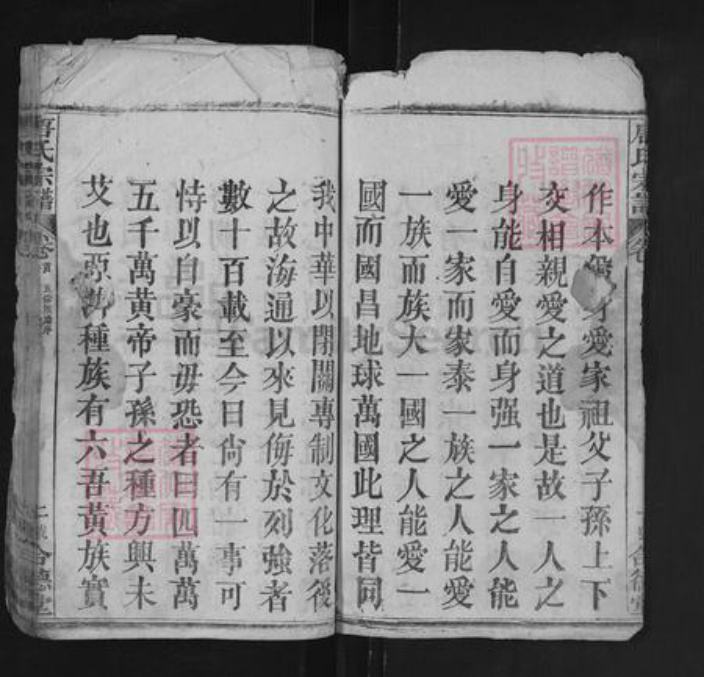 作本 身愛家祖父子孫上下
交相親愛之道也是故一人之
身能自愛而身强一家之人能
愛一家而家泰一族之人能愛
一族而族大一國之人能愛一
國而國昌地球萬國此理皆同
我中華以閉關專制文化落後
之故海通以來見侮於列強者
數十百載至今日尙有一事可
恃以自豪而毋恐者曰四萬萬
五千萬黃帝子孫之種方興未
艾也亞洲種族有六吾黃族實
唐氏宗譜
卷 首
合德堂